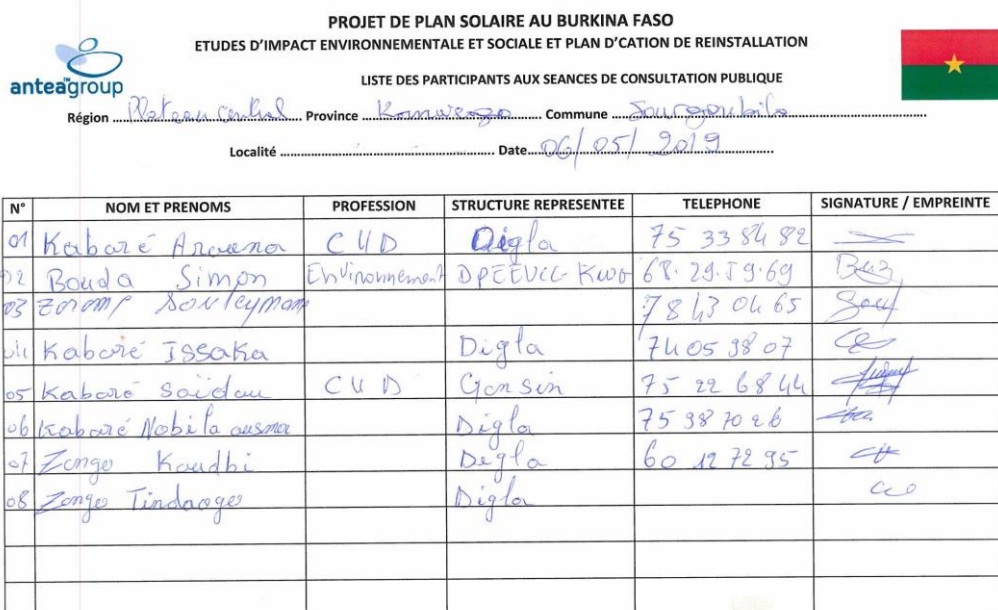 PROJET DE PLAN SOLAIRE AU BURKINA FASO
ETUDES D'IMPACT ENVIRONNEMENTALE ET SOCIALE ET PLAN D'CATION DE REINSTALLATION
anteagroup
LISTE DES PARTICIPANTS AUX SEANCES DE CONSULTATION PUBLIQUE
Région Plateau Central Province Kourweogo Commune Sourgoubila
Localité Date 06/05/2019
N° NOM ET PRENOMS PROFESSION STRUCTURE REPRESENTEE TELEPHONE SIGNATURE / EMPREINTE
01 Kaboré CVD Digla 75 33 84 82
02 Bouda Simon Environnement DPEEVCC-KWG 68.29.59.69
03 Souleyman 78 43 04 65
04 Kaboré Issaka Digla 74 05 98 07
05 Kaboré Saïdou CVD Gonsin 75 22 68 44
06 Kaboré Nobila Digla 75 98 70 26
07 Zongo Koudbi Digla 60 12 72 95
08 Zongo Tindaogo Digla